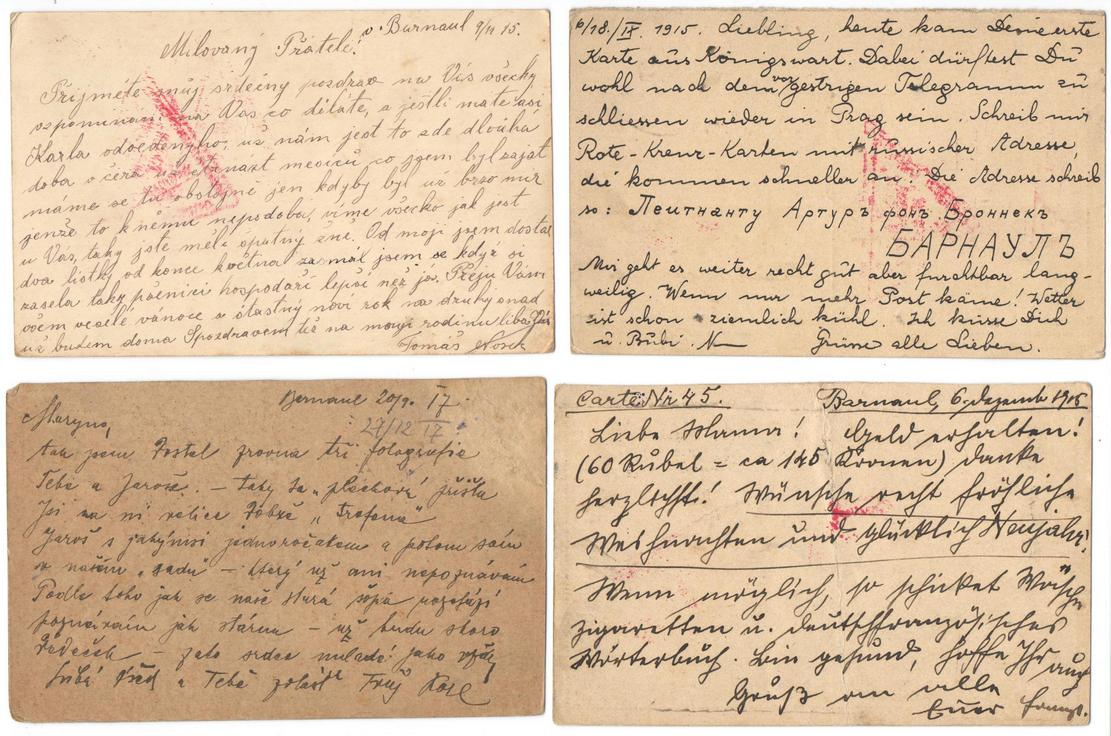 v Barnaul 9/11 15.
Milovaný Přátelé.
Přijměte můj srdečný pozdrav na Vás všechy
vzpomínám na Vás co děláte, a jestli máte asi
Karla odvedenýho, už nám jest to zde dlouhá
doba včera měsíců, co jsem byl zajat
máme se tu obstojně jen kdyby byl už brzo mír
jenže to k němu nepodoba, víme všecko jak jest
u Vás, taky jste měli špatný žně. Od mojí jsem dostal
dva lístky od konce května zasmál jsem se když si
zasela taky pšenici hospodaří lepší než já. Přeju Vám
všem veselé vánoce a šťastný nový rok na druhý snad
už budem doma S pozdravem též na mojí rodinu líbá Vás
Tomáš Nosek
6/18./IX. 1915. Liebling, heute kam Deine erste
Karte aus Königswart. Dabei dürftest Du
wohl nach dem vorgestrigen Telegramm zu
schliessen wieder in Prag sein. Schreib mir
Rote-Kreuz-Karten mit russischer Adresse,
die kommen schneller an. Die Adresse schreib
so: Лейтнанту Артуръ фонъ Броннекъ
БАРНАУЛЪ
Mir geht es weiter recht gut aber furchtbar lang-
weilig. Wenn nur mehr Post käme! Wetter
ist schon ziemlich kühl. Ich küsse Dich
u. Bubi. N— Grüsse alle Lieben.
Bernaul 20/9. 17.
27/12 17
Maryno,
tak jsem dostal zrovna tři fotografie
Tebe a Jaroše. – taky ta „plechová“ přišla
Jsi na ní velice dobře
Jaroš s jakýmsi jednoročákem a potom sám
v našem „sadu“ – který už ani nepoznávám
Podle toho jak se naše
poznávám jak stárnu – už budu skoro
Dědeček – zato srdce mladé jako vždy
Líbá a Tebe Tvůj
Carte Nr 45. Barnaul, 6. dezemb 1915
Liebe Mama! Geld erhalten!
(60 Rubel = ca 145 Kronen) danke
herzlichst! Wünsche recht fröhliche
Weihnachten und glücklich Neujahr!
Wenn möglich, so schicket Wäsche
zigaretten u. deutschfranzösisches
Wörterbuch. Bin gesund, hoffe Ihr auch
Gruß an alle
Euer